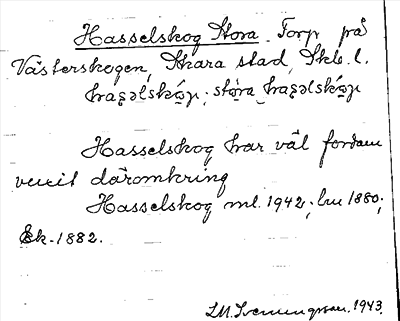 Hasselskog Stora. Torp på
Västerskogen, Skara stad, Skb. l.
Hasselskog har väl fordom
varit däromkring
Hasselskog ml. 1942; hu 1880;
Ek. 1882.
1943.